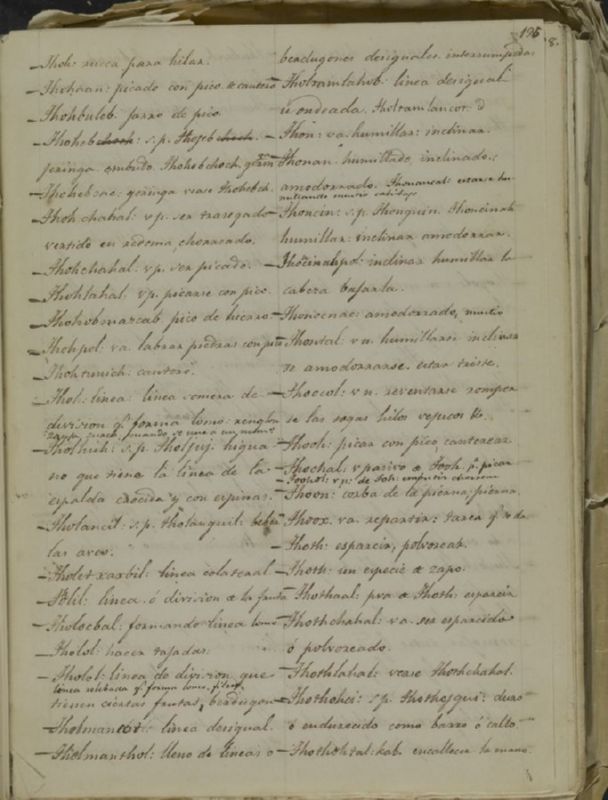 195
8.
Thoh: rueca para hilar.
Thohaan: picado con pico. cantero
Thohbuleb jarro de pico.
Thoheb choch: s.p. Thojeb choch.
geringa embudo. Thohebchoch.
Thohebsac: geringa vease Thohebch.
Thohchahal v p. ser trasegado
vertido en redoma chorreado.
Thohchahal. vp. ser picado.
Thohlahal. vp. picarse con pico.
Thohobmazcab pico de hierro
Thohpol: va. labrar piedras con pico
Thohtunich: cantero.
Thol: linea: linea somera de
division q.e forma lomo:
Tholhuh: s.p. Tholjuj. higua
no que tiene la linea de la
espalda crecida y con espinas.
Tholancil: s.p. Tholanquil:
las aves.
Tholet xaxbil: linea colateral
Tholil: linea ó division de la fruta
Tholocbal: formando linea lomo
Tholol: hacer tajadas
Tholol: linea de division que
tienen ciertas frutas, berdugon
Tholmancot: linea desigual.
Tholmanthol: lleno de lineas o
berdugones desiguales interrumpidas
Tholtamlahob: linea desigual
ú ondeada. Tholtamlancot. d
Thon: va. humillar: inclinar
Thonan: humillado, inclinado:
amodorrado. Thonancal: estarse hu
millando
Thoncin: s.p. Thonquin. Thoncinah
humillar: inclinar amodorrar.
Thoncinahpol: inclinar humillar la
cabeza bajarla.
Thonocnac: amodorrado, mucio
Thontal: v n. humillarse inclinar
se amodorrarse. estar triste.
Thoocol: v n. reventarse romper
se las sogas hilos vejucos &c.
Thooh: picar con pico canterear.
Thochal: v pasivo de Tooh. p.r picar
Thoon: corba de la pierna: pierna.
Thoox. va. repartir: tarea q.e se da
Thoth: esparcir, polvorear.
Thoth: un especie de zapo.
Thothaal: pva de Thoth: esparcir
Thothchahal: va ser esparcido
ó polvoreado.
Thothlahal: vease Thothchahal.
Thothohci: s.p. Thothojqui: duro
ó endurecido como barro ó callo
Thothohtal: kab. encallecer la mano.